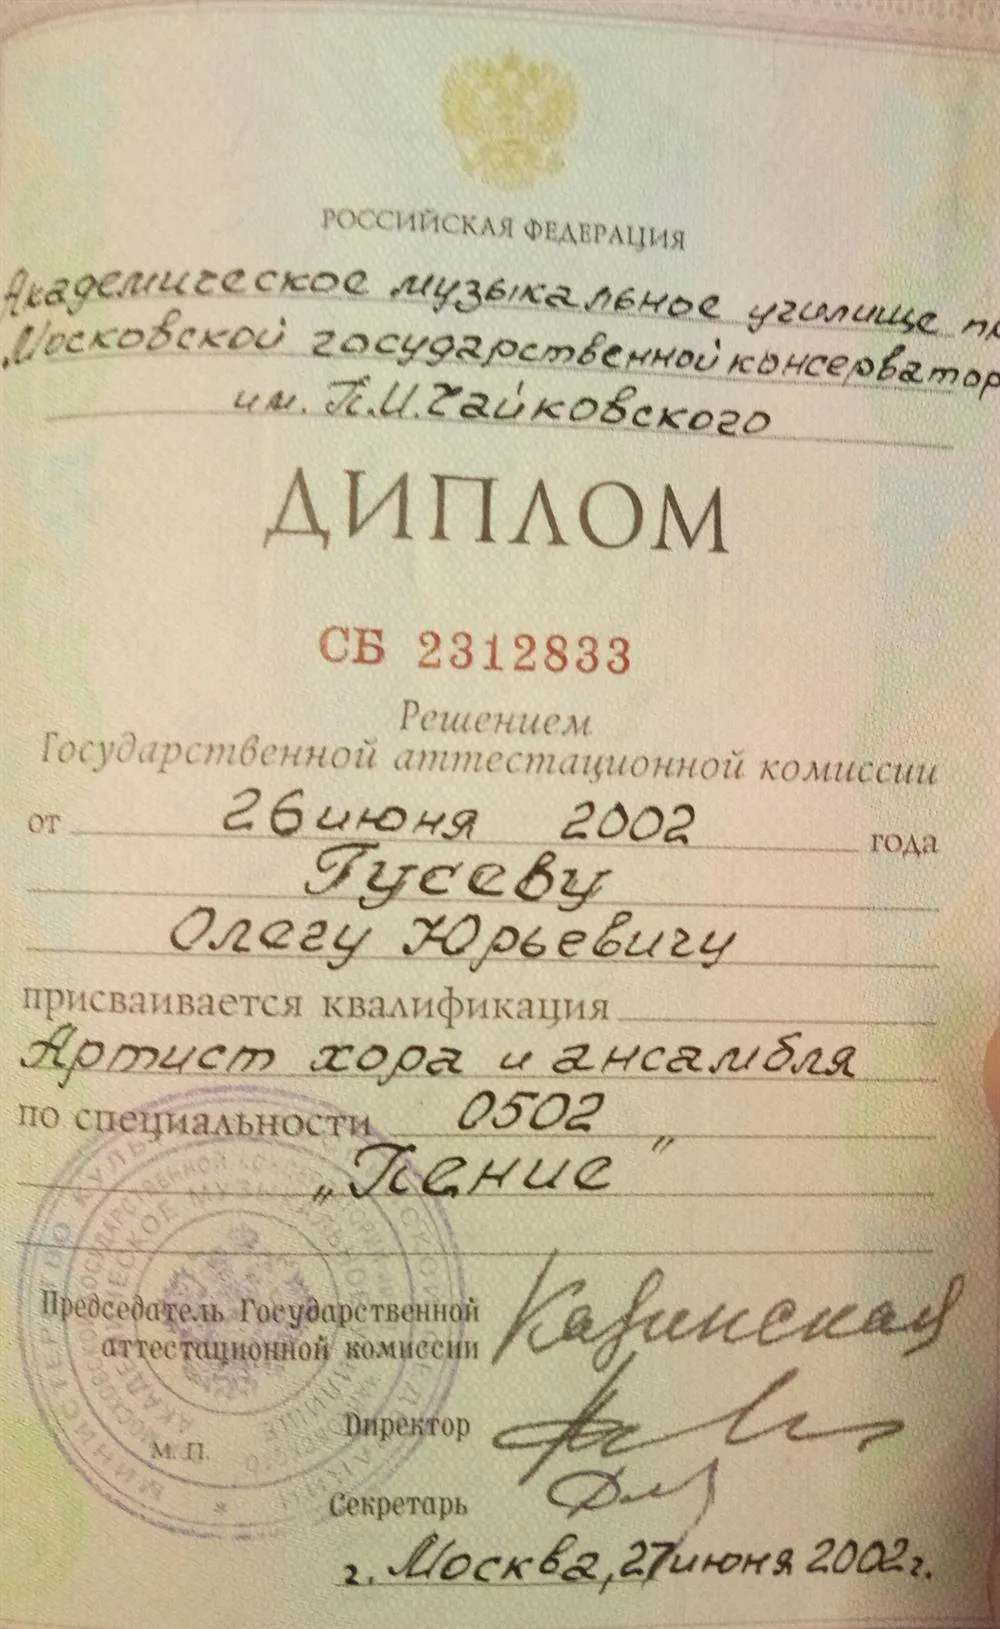 РОССИЙСКАЯ ФЕДЕРАЦИЯ
Академическое музыкальное училище пр
Московской государственной консерватор
им. П.И. Чайковского
ДИПЛОМ
СБ 2312833
Решением
Государственной аттестационной комиссии
от 26 июня 2002 года
Гусеву
Олегу Юрьевичу
присваивается квалификация
Артист хора и ансамбля
по специальности 0502
„Пение"
Председатель Государственной
аттестационной комиссии
Директор
М. П.
Секретарь
г. Москва, 27 июня 2002 г.